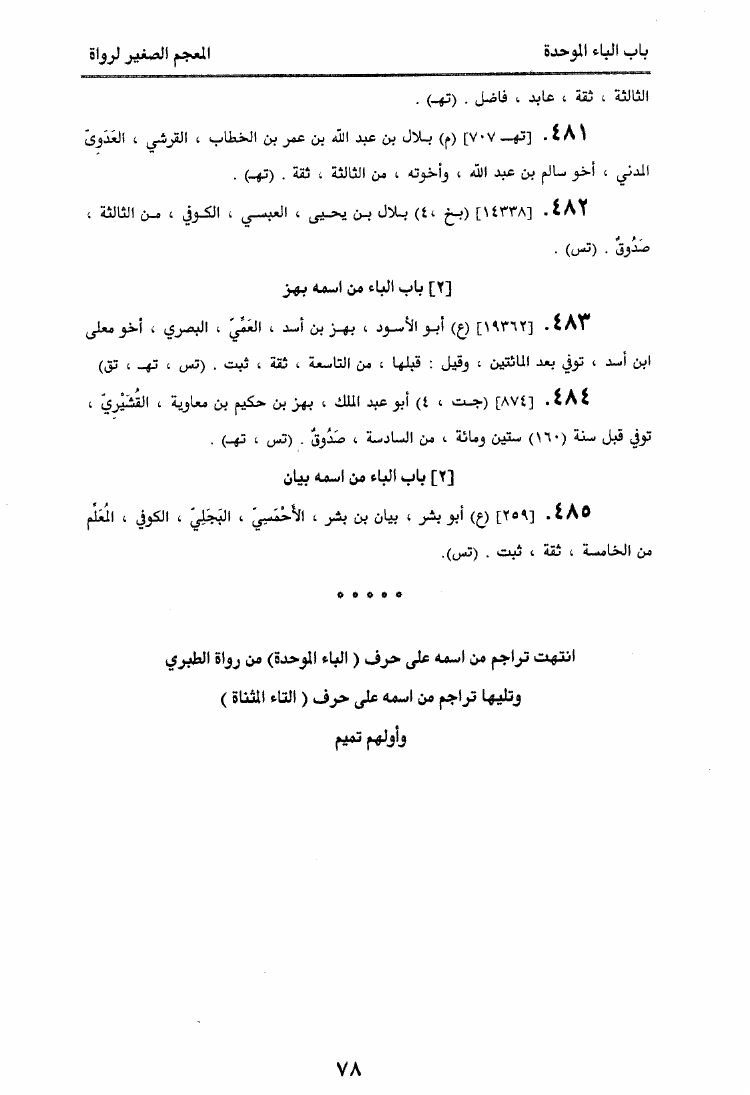 باب الباء الموحدة
المعجم الصغير لرواة
الثالثة ، ثقة ، عابد ، فاضل . (تهـ) .
٤٨١. [تهـ ٧٠٧] (م) بلال بن عبد الله بن عمر بن الخطاب ، القرشي ، العَدَوِيّ
المدني ، أخو سالم بن عبد الله ، وأخوته ، من الثالثة ، ثقة . (تهـ) .
٤٨٢. [١٤٣٣٨] (بخ ،٤) بلال بن يحيى ، العبسي ، الكوفي ، من الثالثة ،
صَدُوقٌ . (تس) .
[٢] باب الباء من اسمه بهز
٤٨٣. [١٩٣٦٢] (ع) أبو الأسود ، بهز بن أسد ، العَمِّيّ ، البصري ، أخو معلى
ابن أسد ، توفي بعد المائتين ، وقيل : قبلها ، من التاسعة ، ثقة ، ثبت . (تس ، تهـ ، تق)
٤٨٤. [٨٧٤] (جت ، ٤) أبو عبد الملك ، بهز بن حكيم بن معاوية ، القُشَيْرِيّ ،
توفي قبل سنة (١٦٠) ستين ومائة ، من السادسة ، صَدُوقٌ . (تس ، تهـ) .
[٢] باب الباء من اسمه بيان
٤٨٥. [٢٥٩] (ع) أبو بشر ، بيان بن بشر ، الأَحْمَسِيّ ، البَجَلِيّ ، الكوفي ، المُعَلِّم
من الخامسة ، ثقة ، ثبت . (تس).
٥ ٥ ٥ ٥ ٥
انتهت تراجم من اسمه على حرف ( الباء الموحدة) من رواة الطبري
وتليها تراجم من اسمه على حرف ( التاء المثناة )
وأولهم تميم
٧٨